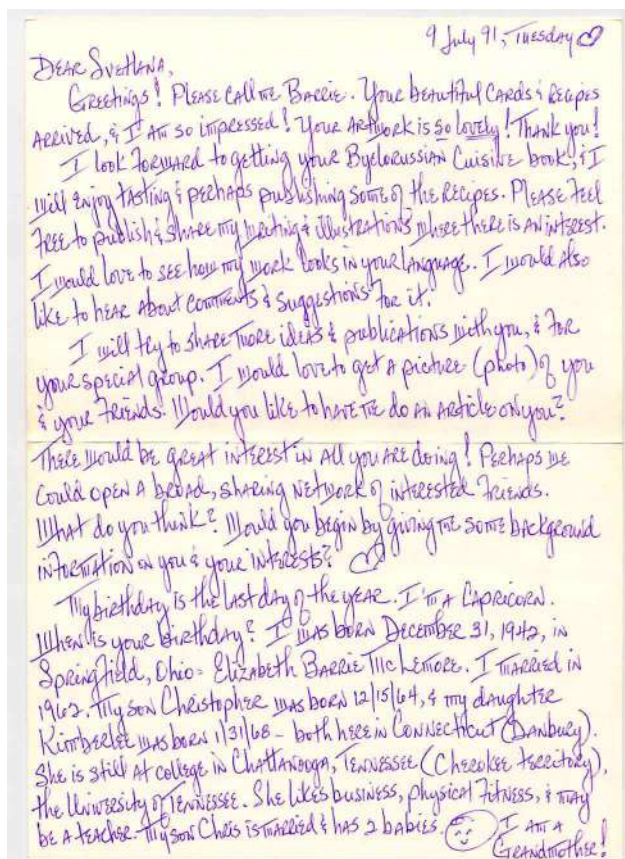 9 July 91, Tuesday
Dear Svetlana,
Greetings! Please call me Barrie. Your beautiful cards & recipes
arrived, & I am so impressed! Your artwork is so lovely! Thank you!
I look forward to getting your Byelorussian Cuisine book, & I
will enjoy tasting & perhaps publishing some of the recipes. Please feel
free to publish & share my writing & illustrations where there is an interest.
I would love to see how my work looks in your language. I would also
like to hear about comments & suggestions for it.
I will try to share more ideas & publications with you, & for
your special group. I would love to get a picture (photo) of you
& your friends. Would you like to have me do an article on you?
There would be great interest in all you are doing! Perhaps we
could open a broad, sharing network of interested friends.
What do you think? Would you begin by giving me some background
information on you & your interests?
My birthday is the last day of the year. I'm a Capricorn.
When is your birthday? I was born December 31, 1942, in
Springfield, Ohio = Elizabeth Barrie McLemore. I married in
1962. My son Christopher was born 12/15/64, & my daughter
Kimberlee was born 1/31/68 - both here in Connecticut (Danbury).
She is still at college in Chattanooga, Tennessee (Cherokee territory),
the University of Tennessee. She likes business, physical fitness, & may
be a teacher. My son Chris is married & has 2 babies. I am a
Grandmother!